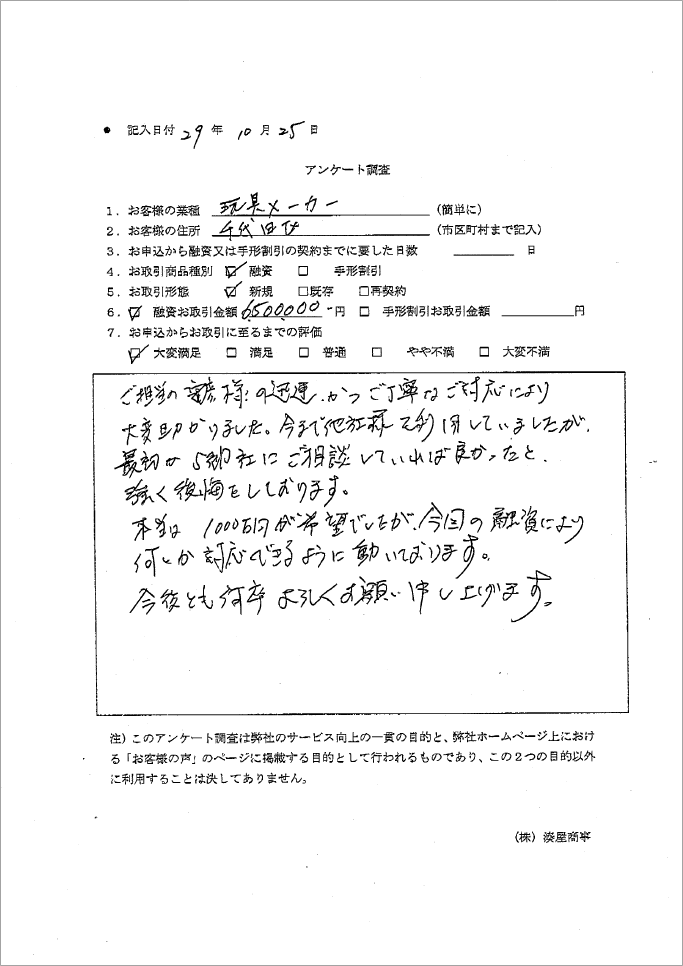 ● 記入日付 29 年 10 月 25 日
アンケート調査
1．お客様の業種 玩具メーカー (簡単に)
2．お客様の住所 千代田 (市区町村まで記入)
3．お申込から融資又は手形割引の契約までに要した日数 日
4．お取引商品種別 ☑ 融資 □ 手形割引
5．お取引形態 ☑ 新規 □既存 □再契約
6．☑ 融資お取引金額 6,500,000-円 □ 手形割引お取引金額 円
7．お申込からお取引に至るまでの評価
☑ 大変満足 □ 満足 □ 普通 □ やや不満 □ 大変不満
ご担当の 様の迅速、かつご丁寧なご対応により
大変助かりました。今まで他社様を利用していましたが、
最初から御社にご相談していれば良かったと、
強く後悔をしております。
本当は 1000万円が希望でしたが、今回の融資により
何とか対応できるように動いております。
今後とも何卒よろしくお願い申し上げます。
注）このアンケート調査は弊社のサービス向上の一貫の目的と、弊社ホームページ上におけ
る「お客様の声」のページに掲載する目的として行われるものであり、この２つの目的以外
に利用することは決してありません。
(株) 湊屋商事